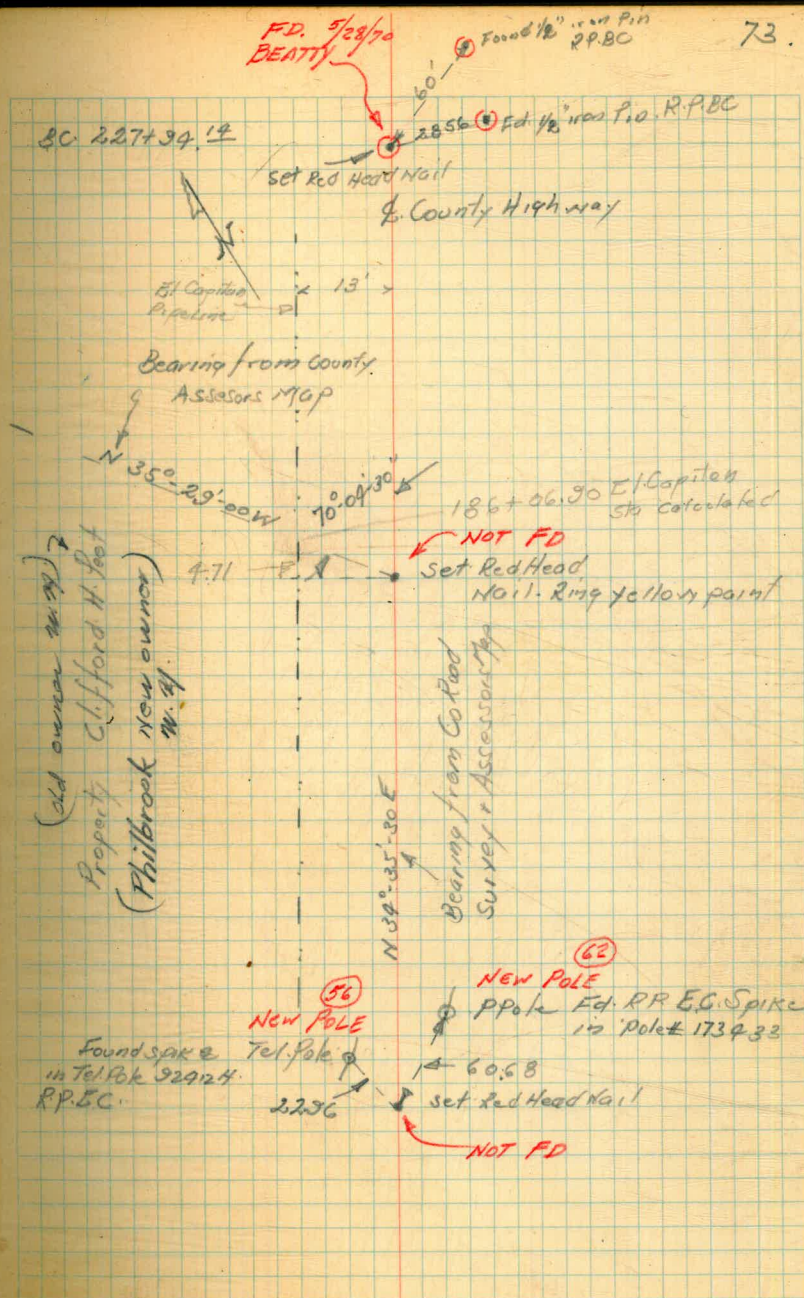 73.
FD. 5/28/70
BEATTY
Found 1/2" iron Pin
R.P. BC
60'
28 56
Fd. 1/2" iron Pin. R.P. BC
BC 227+94.14
Set Red Head Nail
℄ County Highway
El Capitan
Pipeline
13'
Bearing from County
Assasors Map
N 35°-29'-00"W
70°-04'-30"
186+06.90 El Capitan
Sta Calculated
NOT FD
4.71
Set Red Head
Nail-Ring yellow paint
(old owner
Property Clifford H.
(Philbrook New owner)
N 34°-35'-30 E
Bearing from Co Road
Survey & Assessors Map
56
NEW POLE
62
NEW POLE
PPole Fd. R.P. E.C. Spike
in Pole# 173433
Found spike
in Tel. Pole 92412H
R.P. E.C.
Tel. Pole
60.68
22.96
Set Red Head Nail
NOT FD